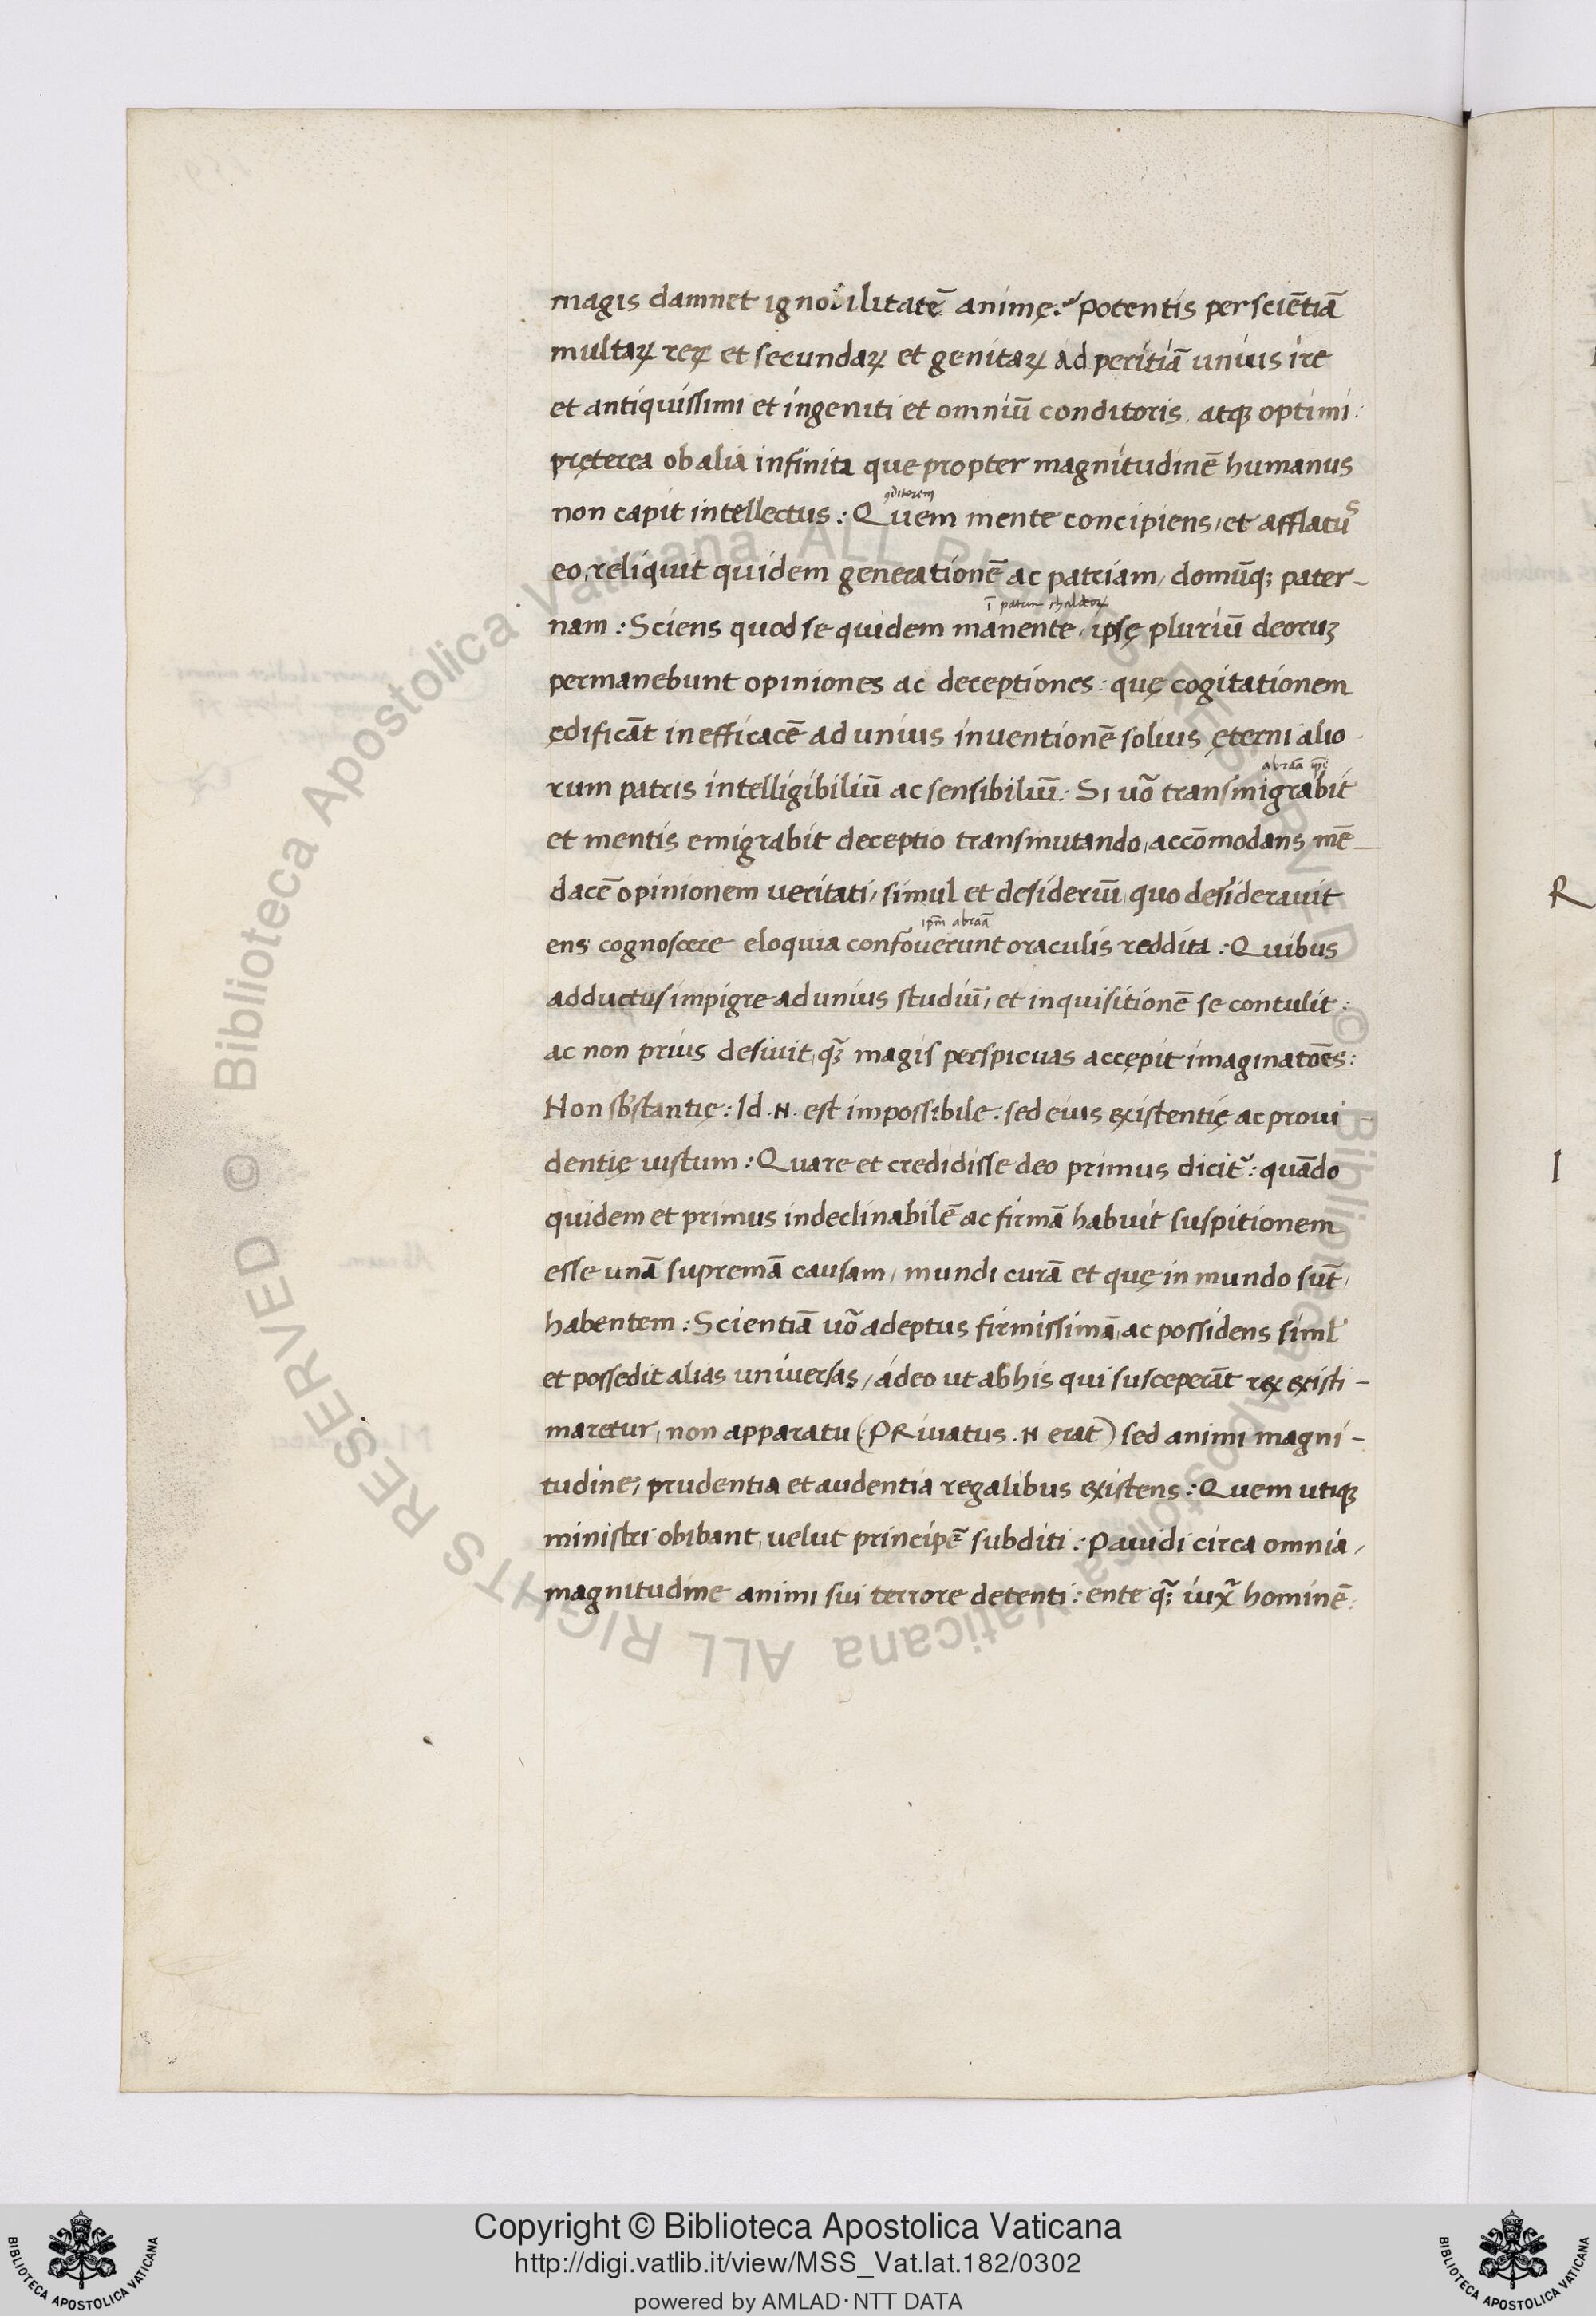 magis damnet ignobilitatē animę: Potentis per sciētiā
multaꝝ reꝝ et secundaꝝ et genitaꝝ ad peritiā unius ire
et antiquissimi et ingeniti et omniū conditoris. atqꝫ optimi:
pręterea ob alia infinita que propter magnitudinē humanus
ꝯditorem
non capit intellectus: Quem mente concipiens, et afflatus
eo, reliquit quidem generationē ac patriam, domūqꝫ pater-
ī patria chaldeoꝝ
nam: Sciens quod se quidem manente, ipsę pluriū deoruꝫ
permanebunt opiniones ac deceptiones: quę cogitationem
ędificāt inefficacē ad unius inuentionē solius ęterni alio
rum patris intelligibiliū ac sensibiliū: Si uō transmigrabit
abraā ipse
et mentis emigrabit deceptio transmutando, accōmodans mē
dacē opinionem ueritati, simul et desideriū, quo desiderauit
ipm̄ abraā
ens cognoscere eloquia confouerunt oraculis reddita: Quibus
adductus impigre ad unius studiū, et inquisitionē se contulit:
ac non prius desiuit, qꝫ̄ magis perspicuas accępit imaginatōes:
Non sb̄stantię: Id .N. est impossibile: sed eius existentię ac proui
dentię uistum: Quare et credidisse deo primus dicit᷑: quādo
quidem et primus indeclinabilē ac firmā habuit suspitionem
esse unā supremā causam, mundi curā et quę in mundo sūt,
habentem: Scientiā uō adeptus firmissimā, ac possidens siml̄
et possedit alias uniuersas, ádeo ut ab his qui susceperāt rex existi-
maretur, non apparatu (PRiuatus .N erat) sed animi magni-
tudine, prudentia et audentia regalibus existens: Quem utiqꝫ
ministri obibant, uelut principē subditi: Pauidi circa omnia,
magnitudine animi sui terrore detenti: ente qꝫ̄ iux̄ hominē:
R
I
Copyright © Biblioteca Apostolica Vaticana
http://digi.vatlib.it/view/MSS_Vat.lat.182/0302
powered by AMLAD·NTT DATA
BIBLIOTECA APOSTOLICA VATICANA
BIBLIOTECA APOSTOLICA VATICANA
© Biblioteca Apostolica Vaticana ALL RIGHTS RESERVED © Biblioteca Apostolica Vaticana ALL RIGHTS RESERVED